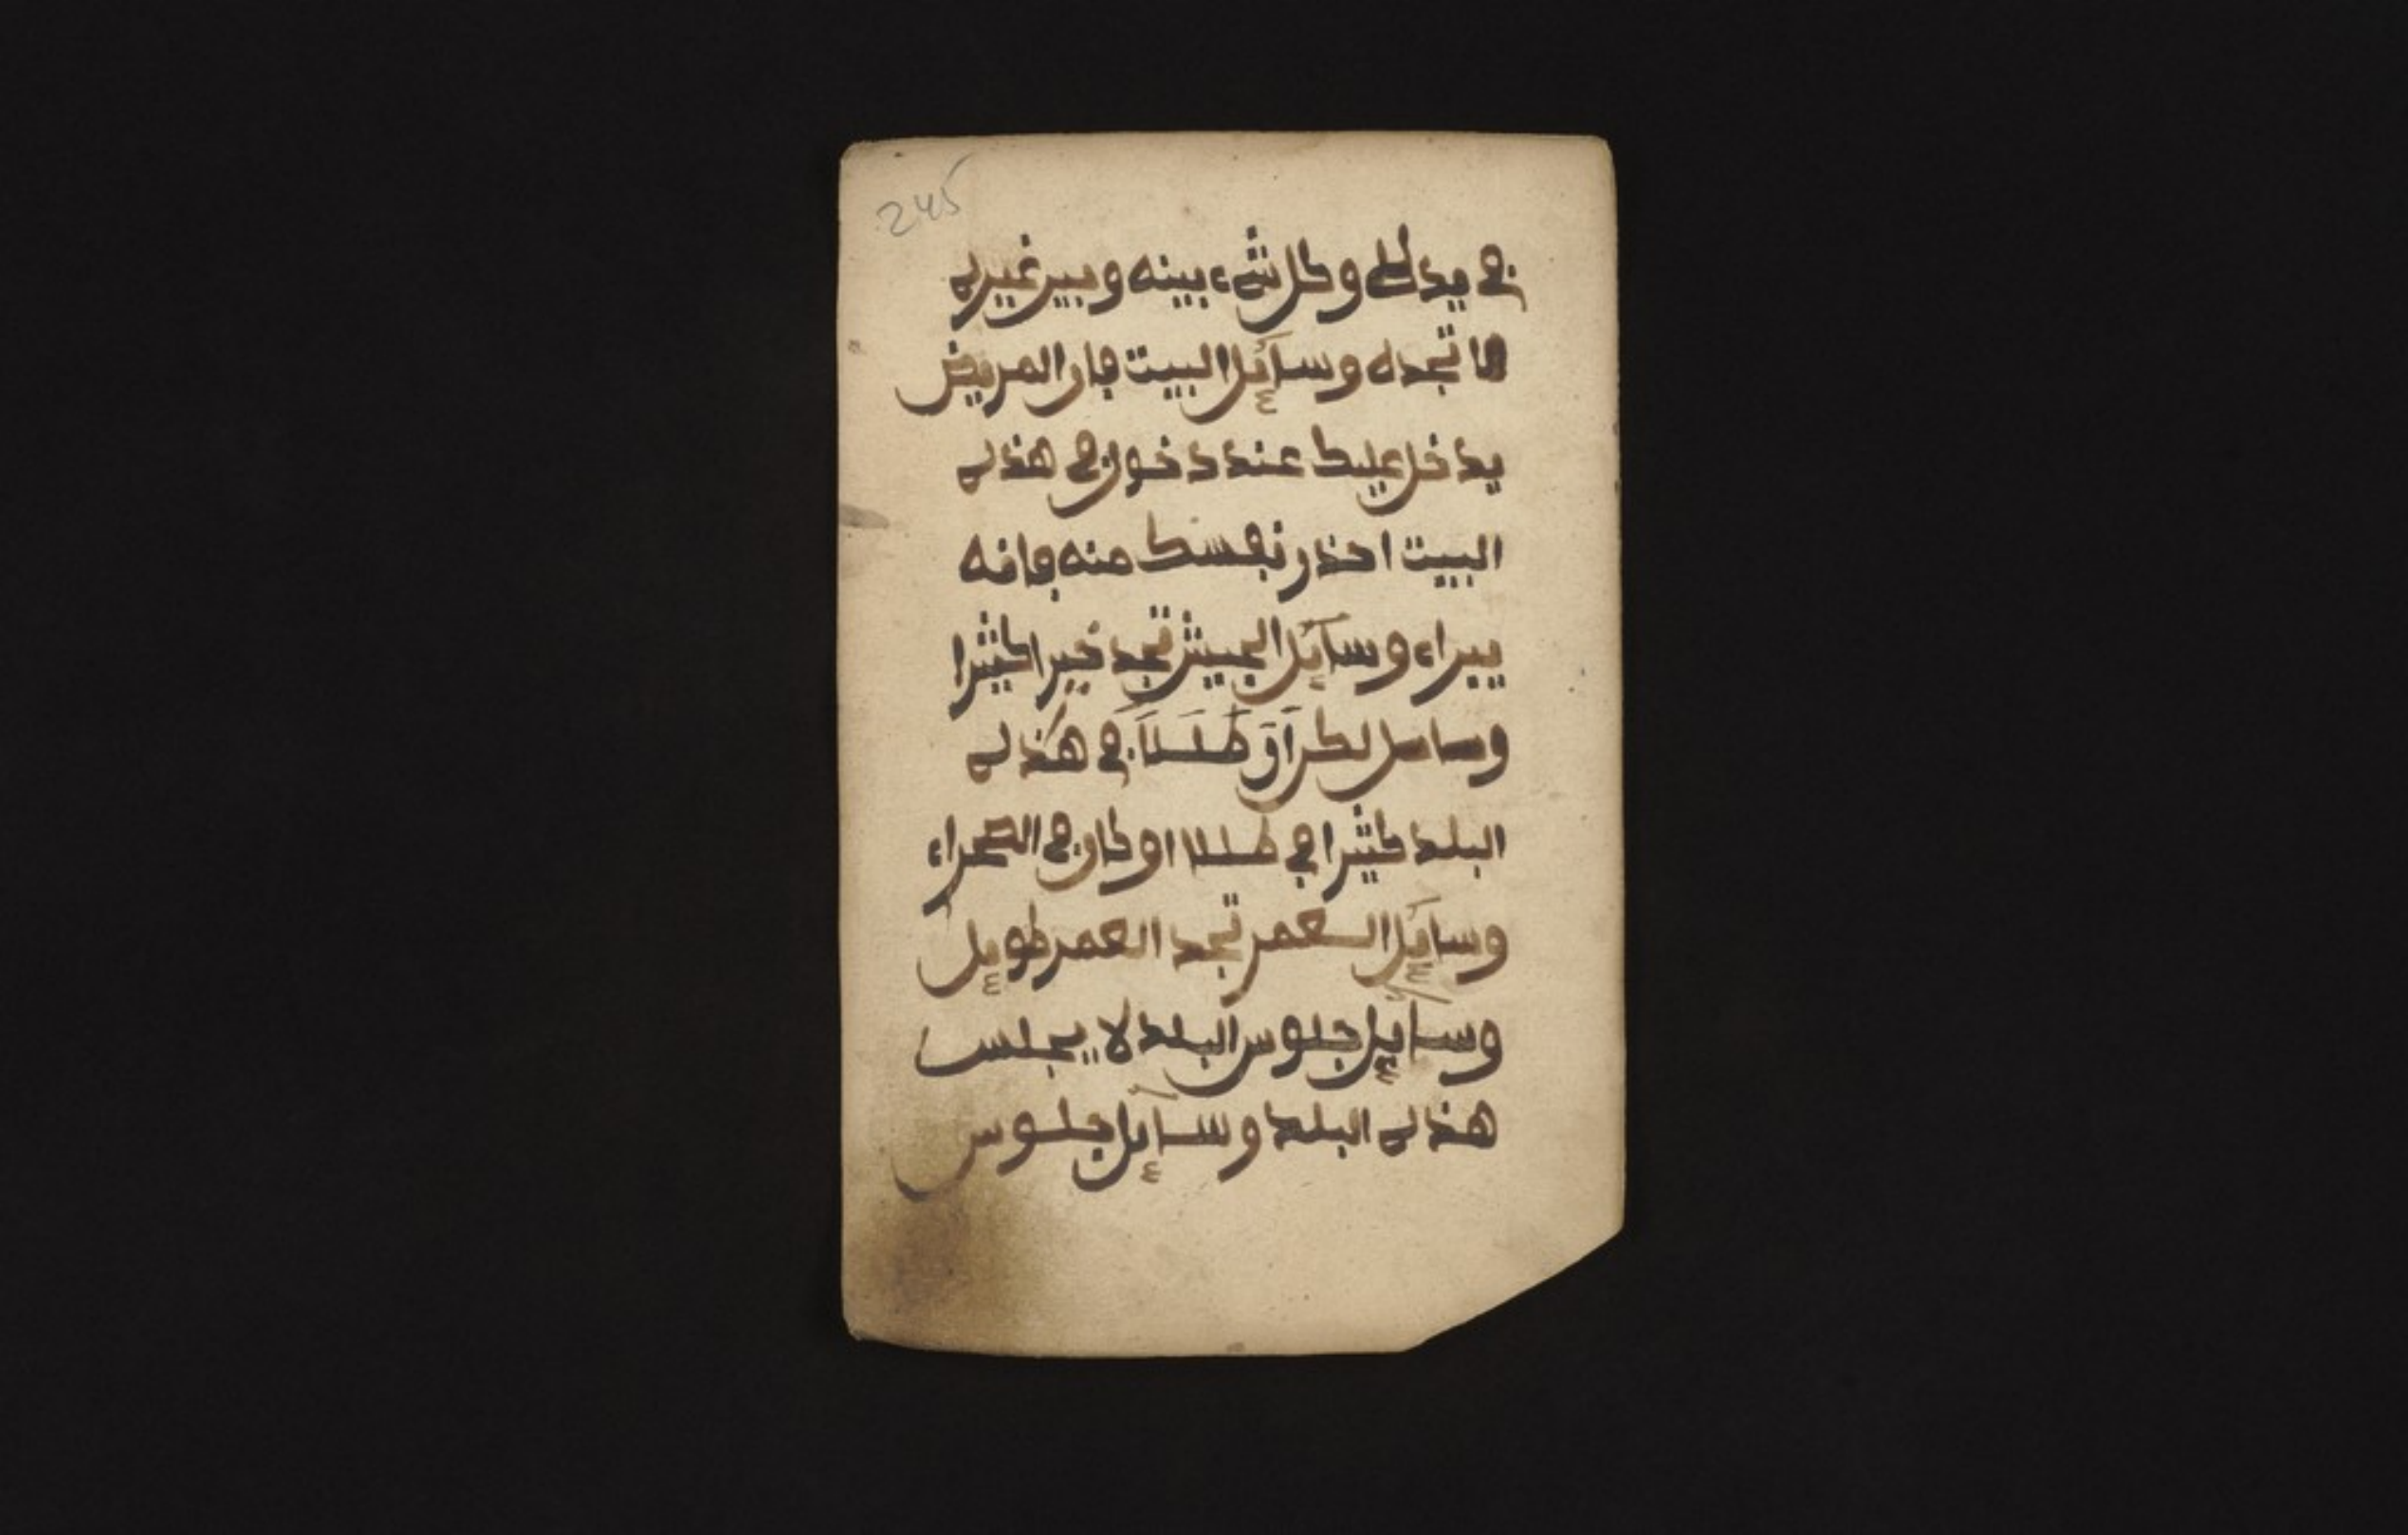 245
في يدك وكل شيء بينه وبين غيره
ما تجده وسآئل البيت فان المريض
يدخل عليك عند دخول في هذه
البيت احذر نفسك منه فانه
يبراء وسآئل الجيش تجد خيرا كثيرا
في هذه
البلد كثيرا في او كان في الصحراء
وسآئل العمر تجد العمر طويل
وسآئل جلوس البلد لا يجلس
هذه البلد وسآئل جلوس